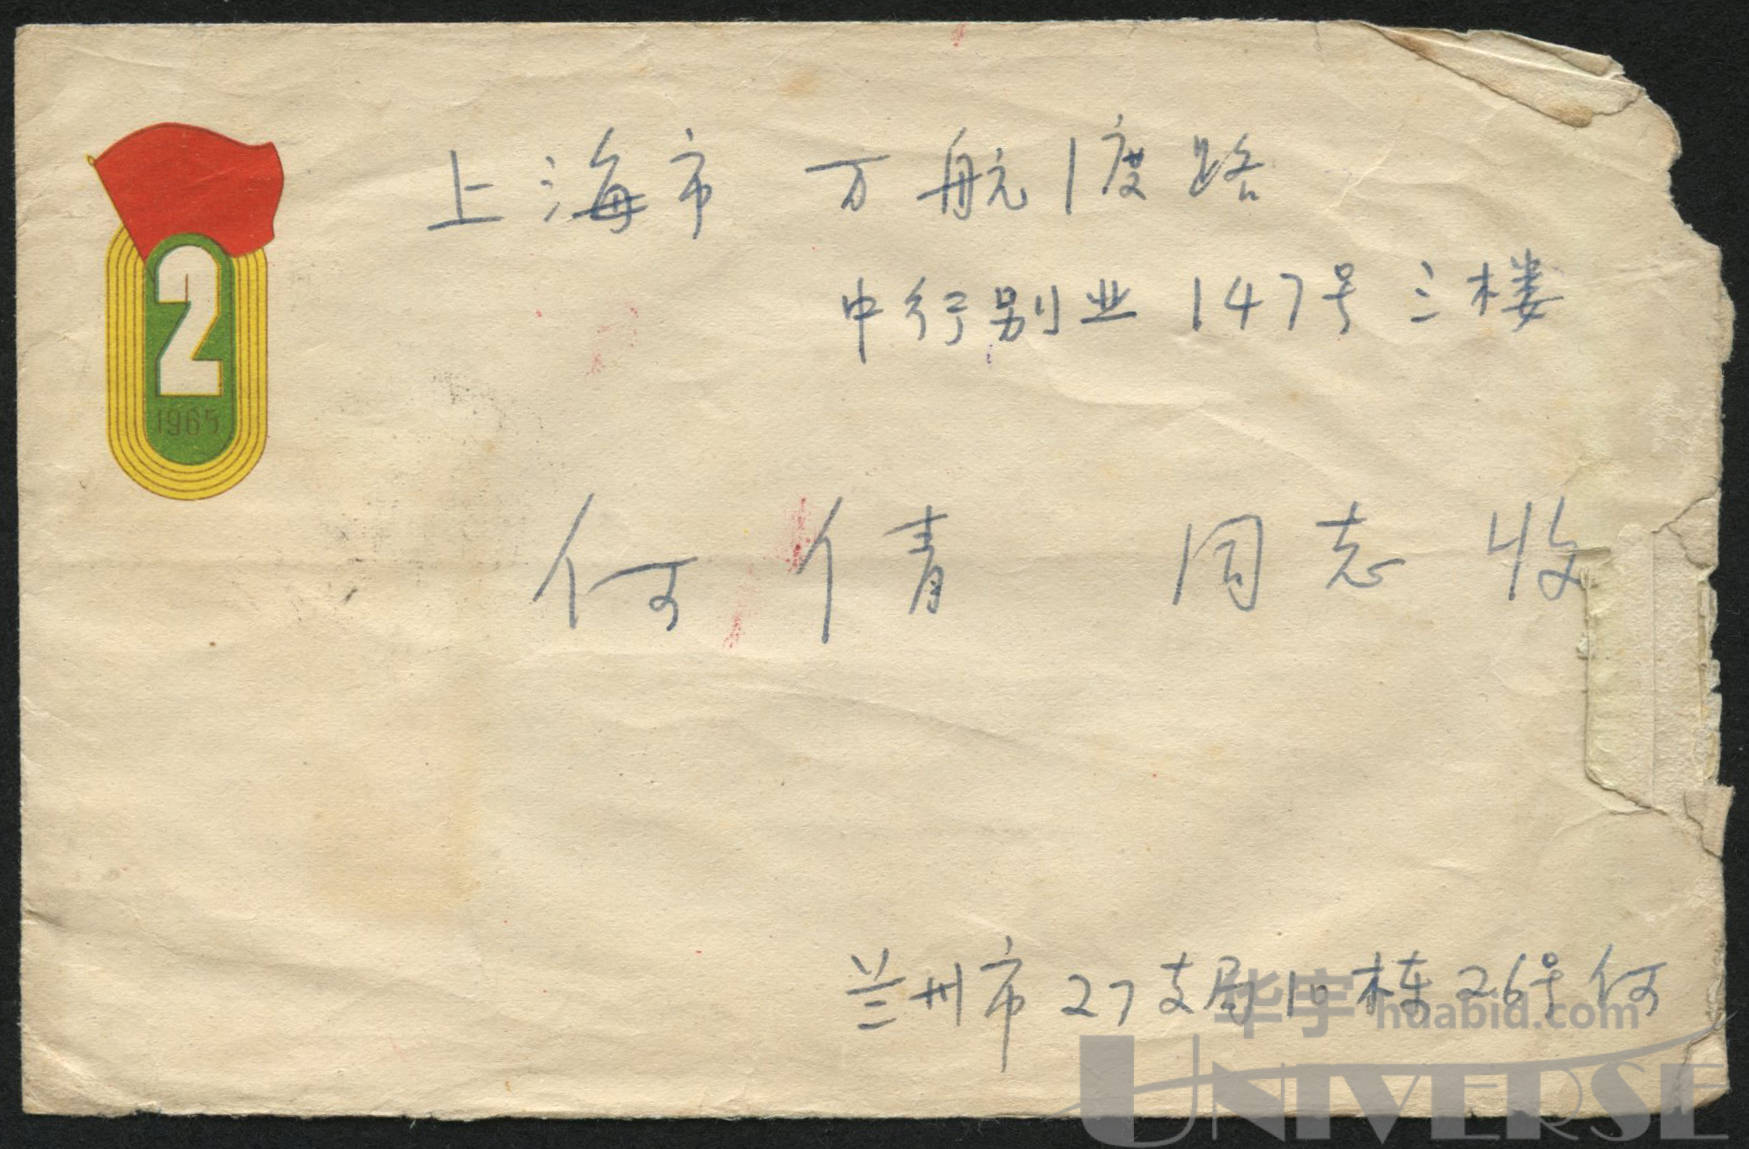 2
1965
上海市 万航渡路
中行别业 147号 三楼
何倩 同志 收
兰州市 27支局 10栋 26号 何
华宇 huabid.com
UNIVERSE